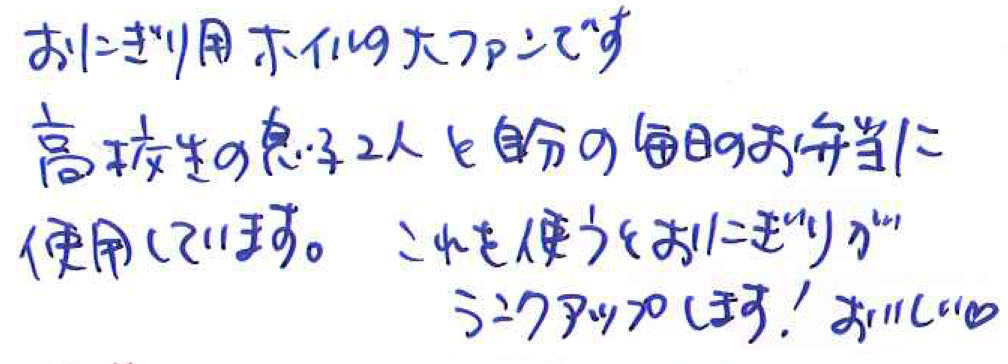 おにぎり用ホイルの大ファンです
高校生の息子2人と自分の毎日のお弁当に
使用しています。 これを使うとおにぎりが
ランクアップします! おいしい♡